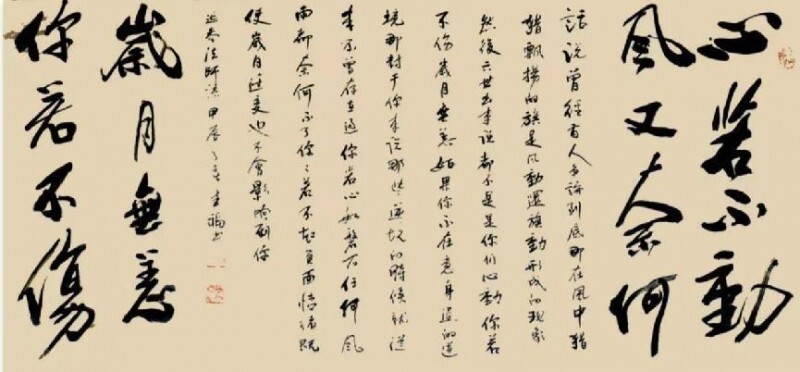 心若不動
風又奈何
話說曾經有人爭論到底那在風中獵
獵飄揚的旗是風動還旗動形成的現象
然後六世出來說都不是是你們心動你若
不傷歲月無恙如果你不在意身邊的逆
境那對于你來說那些逆境的時候就從
來不曾存在過你若心如磐石任何風
雨都奈何不了你你若不起負面情緒既
使歲月迁变也不會影响到你
延参法師語甲辰之春
歲月無恙
你若不傷